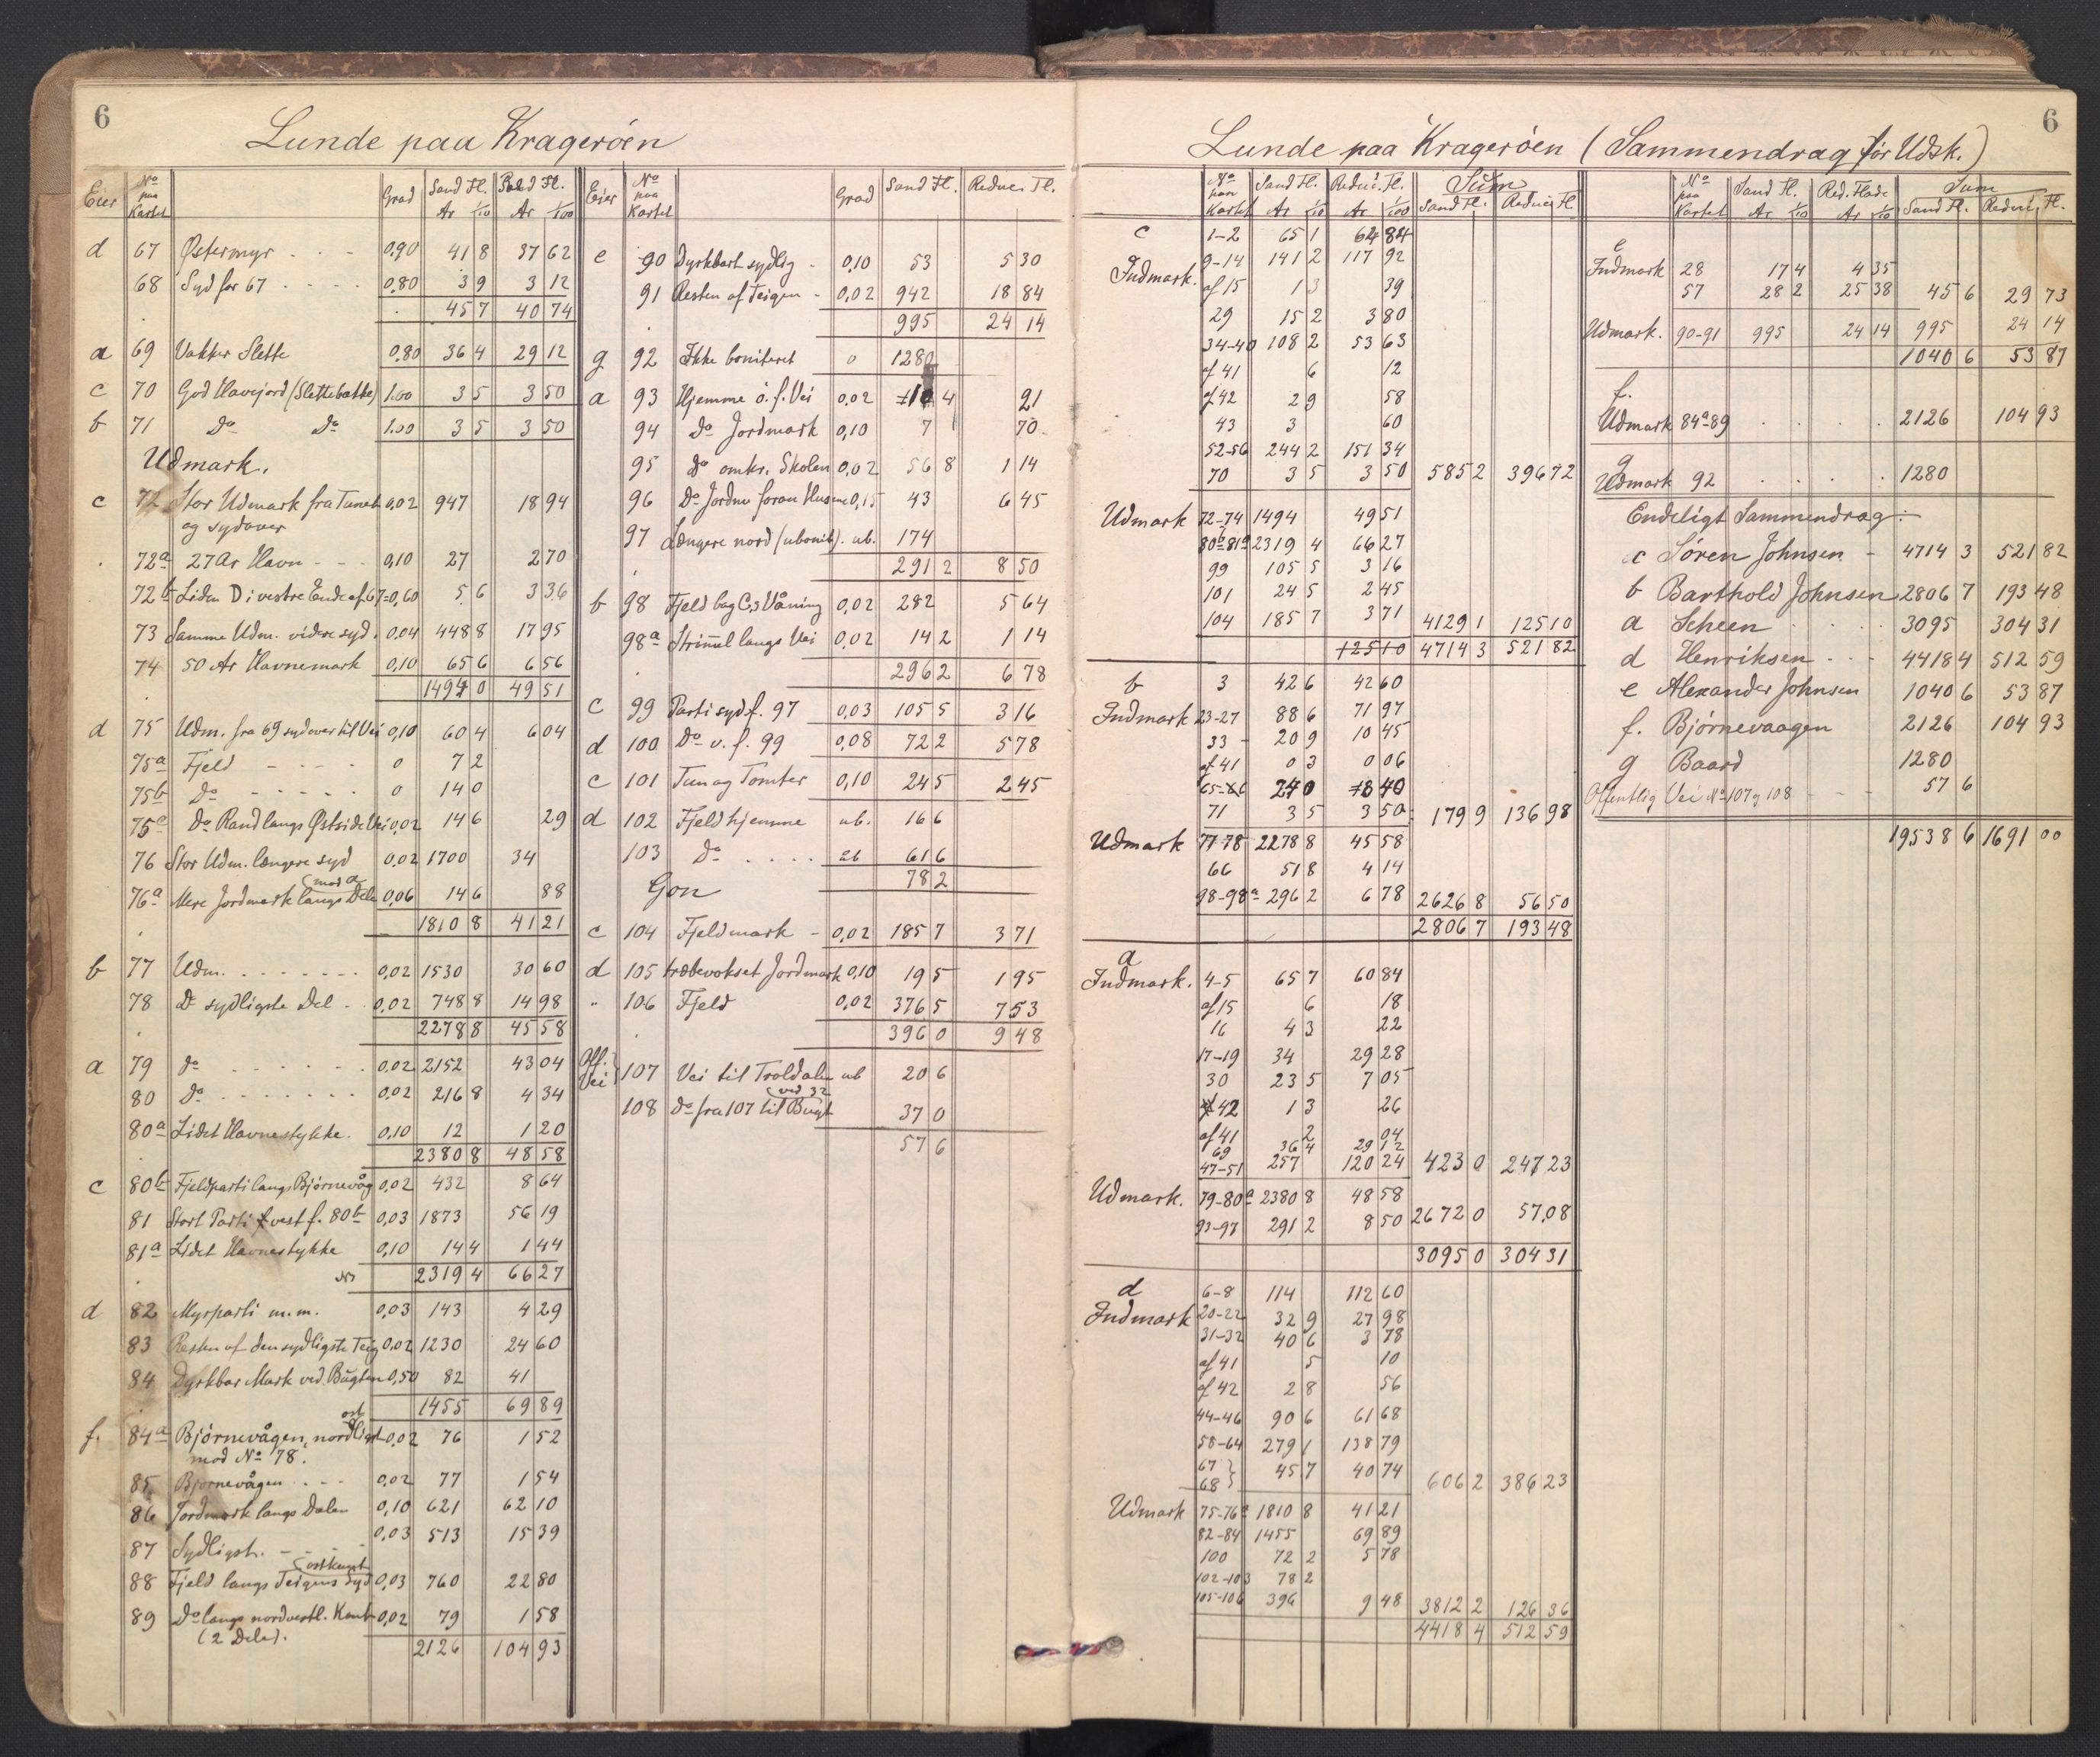 6
Lunde paa Kragerøen
Eier | No paa Kartet | | Grad | Sand Fl. Ar 1/10 | Red Fl. Ar 1/100
d 67 Østermyr - - - 0,90 41 8 37 62
68 Syd for 67 - - - - 0,80 3 9 3 12
45 7 40 74
a 69 Vakker Slette 0,80 36 4 29 12
c 70 God Havejord (Slettebakke) 1.00 3 5 3 50
b 71 Do Do 1.00 3 5 3 50
Udmark.
c 72 Stor Udmark fra Tunet 0,02 947 18 94
og sydover
72a 27 Ar Havn - - - 0,10 27 2 70
72b Liden D i vestre Ende af 67 = 0,60 5 6 3 36
73 Samme Udm. videre syd. 0,04 448 8 17 95
74 50 Ar Havnemark 0,10 65 6 6 56
1494 0 49 51
d 75 Udm. fra 69 sydover til Vei 0,10 60 4 6 04
75a Fjeld - - - - 0 7 2
75b Do - - - - - 0 14 0
75c Do Rand langs Østside Vei 0,02 14 6 29
76 Stor Udm. længere syd 0,02 1700 34
(mod a
76a Mere Jordmark langs Dele 0,06 14 6 88
1810 8 41 21
b 77 Udm. - - - - - - - 0,02 1530 30 60
78 Do sydligste Del - - 0,02 748 8 14 98
2278 8 45 58
a 79 Do - - - - - - 0,02 2152 43 04
80 Do - - - - - - - 0,02 216 8 4 34
80a Lidet Havnestykke. 0,10 12 1 20
2380 8 48 58
c 80b Fjeldparti langs Bjørnevåg 0,02 432 8 64
81 Stort Parti vest f. 80b 0,03 1873 56 19
81a Lidet Havnestykke 0,10 14 4 1 44
2319 4 66 27
d 82 Myrparti m.m. 0,03 143 4 29
83 Resten af den sydligste Teig 0,02 1230 24 60
84 Dyrkbar Mark ved Bugten 0,50 82 41
1455 69 89
ost
f. 84a Bjørnevågen, nordligst 0,02 76 1 52
mod No 78.
85 Bjørnevågen - - - 0,02 77 1 54
86 Jordmark langs Dalen 0,10 621 62 10
87 Sydligst. - - - - 0,03 513 15 39
(ostkant
88 Fjeld langs Teigens Syd 0,03 760 22 80
89 Do langs nordvestl. Kant 0,02 79 1 58
(2 Dele).
2126 104 93
Eier | No paa Kartet | | Grad | Sand Fl. | Reduc. Fl.
e 90 Dyrkbart sydlig - 0,10 53 5 30
91 Resten af Teigen - 0,02 942 18 84
995 24 14
g 92 Ikke boniteret 0 1280
a 93 Hjemme ø. f. Vei 0,02 10 4 21
94 Do Jordmark 0,10 7 70
95 Do omkr. Skolen 0,02 56 8 1 14
96 Do Jordm foran Husene 0,15 43 6 45
97 Længere nord (ubonit). ub. 174
291 2 8 50
b 98 Fjeld bag C,s Våning 0,02 282 5 64
98a Strimmel langs Vei 0,02 14 2 1 14
296 2 6 78
c 99 Parti syd f. 97 0,03 105 5 3 16
d 100 Do v. f. 99 0,08 72 2 5 78
c 101 Tun og Tomter 0,10 24 5 2 45
d 102 Fjeld hjemme ub. 16 6
103 Do . . . . ub 61 6
78 2
Gon
c 104 Fjeldmark - 0,02 185 7 3 71
d 105 træbevokset Jordmark 0,10 19 5 1 95
" 106 Fjeld 0,02 376 5 7 53
396 0 9 48
Off. Vei 107 Vei til Troldalen ub 20 6
(ved 32
108 Do fra 107 til Bugt 37 0
57 6
6
Lunde paa Kragerøen (Sammendrag før Udsk.)
No paa Kartet | Sand Fl. Ar 1/10 | Reduc. Fl. Ar 1/100 | Sum Sand Fl. | Reduc. Fl
c 1-2 65 1 62 84
Indmark. 9-14 141 2 117 92
af 15 1 3 39
29 15 2 3 80
34-40 108 2 53 63
af 41 6 12
af 42 2 9 58
43 3 60
52-56 244 2 151 34
70 3 5 3 50 585 2 396 72
Udmark 72-74 1494 49 51
80b-81a 2319 4 66 27
99 105 5 3 16
101 24 5 2 45
104 185 7 3 71 4129 1 125 10
125 10 4714 3 521 82
b 3 42 6 42 60
Indmark 23-27 88 6 71 97
33 - 20 9 10 45
af 41 0 3 0 06
65-66 24 0 8 40
71 3 5 3 50 179 9 136 98
Udmark 77-78 2278 8 45 58
66 51 8 4 14
98-98a 296 2 6 78 2626 8 56 50
2806 7 193 48
a
Indmark. 4-5 65 7 60 84
af 15 6 18
16 4 3 22
17-19 34 29 28
30 23 5 7 05
42 1 3 26
af 41 2 04
69 36 4 29 12
47-51 257 120 24 423 0 247 23
Udmark. 79-80a 2380 8 48 58
93-97 291 2 8 50 2672 0 57,08
3095 0 304 31
d 6-8 114 112 60
Indmark 20-22 32 9 27 98
31-32 40 6 3 78
af 41 5 10
af 42 2 8 56
44-46 90 6 61 68
58-64 279 1 138 79
67 } 68 } 45 7 40 74 606 2 386 23
Udmark 75-76a 1810 8 41 21
82-84 1455 69 89
100 72 2 5 78
102-103 78 2
105-106 396 9 48 3812 2 126 36
4418 4 512 59
No paa Kartet | Sand Fl. Ar 1/10 | Red. Flade Ar 1/10 | Sum Sand Fl. | Reduc. Fl.
e
Indmark 28 17 4 4 35
57 28 2 25 38 45 6 29 73
Udmark. 90-91 995 24 14 995 24 14
1040 6 53 87
f.
Udmark 84a-89 . . . . 2126 104 93
g
Udmark 92 . . . . 1280
Endeligt Sammendrag:
c Søren Johnsen - 4714 3 521 82
b Barthold Johnsen 2806 7 193 48
a Scheen . . . . 3095 304 31
d Henriksen - - - 4418 4 512 59
e Alexander Johnsen 1040 6 53 87
f. Bjørnevaagen 2126 104 93
g Baard 1280
Offentlig Vei No 107 og 108 - - 57 6
19538 6 1691 00